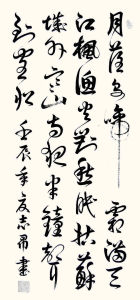 月落烏啼霜滿天
江楓漁火對愁眠姑蘇
城外寒山寺夜半鐘聲
到客船 壬辰年夏志書